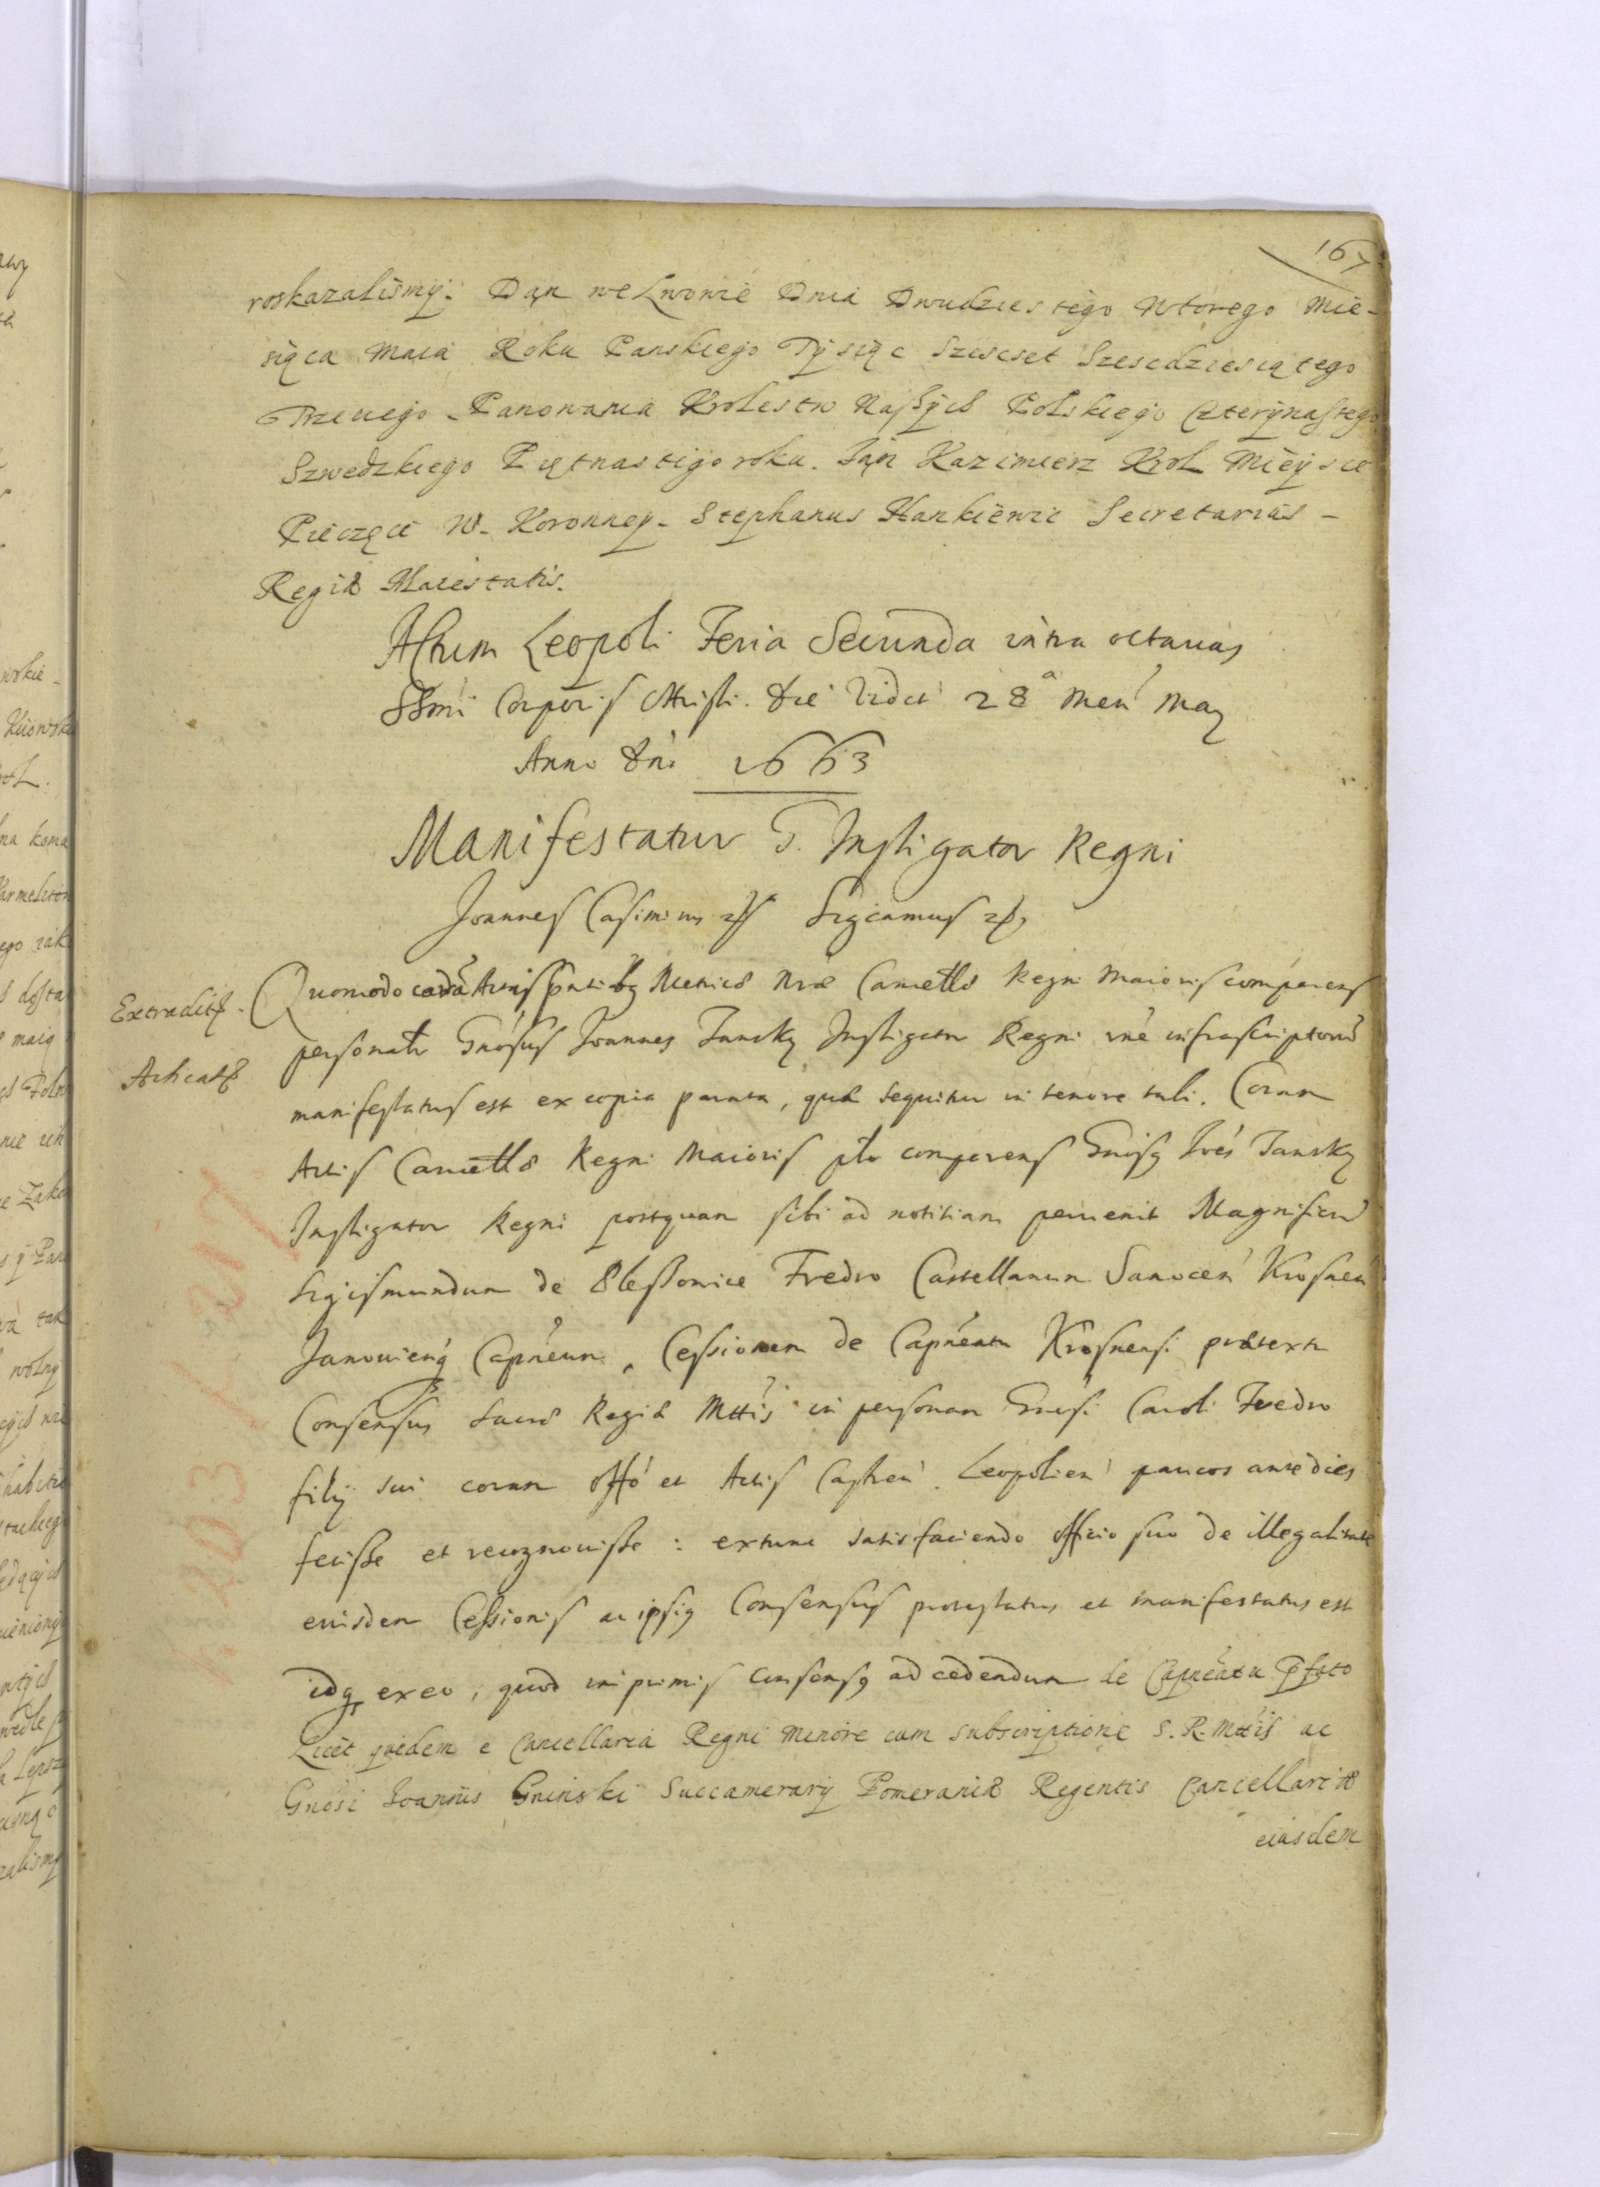 167
roskazalismÿ. Dąn we Lwowie Dnia Dwudziestego wtorego Mie-
siąca Maia Roku Panskiego Tÿsiąc Szescset Szescdziesiątego
Trzeciego. Panowania Krolestw Naszÿch Polskiego Czterÿnastego
Szwedzkiego Piętnastego roku. Ján Kazimierz Krol Mieÿsce
Pieczęci W. Koronneÿ. Stephanus Hankiewic Secretarius -
Regiæ Maiestatis.
Actum Leopoli Feria Secunda intra octauas
SSmi Corporis Christi. die videt 28ª Men Maÿ
Anno Dni 1663
Manifestatur G. Instigator Regni
Joannes Casimirus Significamus
Extradit. Quomodo coram Actis pntibus Metrices Nræ Cancellæ Regni Maioris comparens
personalr Gnosus Joannes Tansky Instigator Regni
manifestatus est ex copia parata, quæ sequitur in tenore tali. Coram
Actis Cancellæ Regni Maioris plr comparens Gnosus Joes Tansky
Instigator Regni postquam sibi ad notitiam peruenit Magnificum
Sigismundum de Fredro Castellanum Sanocen Krosnen
Capneum, Cessionem de Capneatu Krosnensi prætextu
Consensus Sacræ Regiæ Mttis in personam Gnosi Caroli Fredro
filÿ sui coram offo et Actis Castren Leopolien paucos ante dies
fecisse et recognouisse: extunc satisfaciendo officio suo de illegalitate
eiusdem Cessionis ac ipsius Consensus protestatus et manifestatus est
idq exeo, quod inprimis consensus ad cedendum de Capneatu pfato
Licet quidem e Cancellaria Regni Minore cum subscriptione S. R. Mttis ac
Gnosi Joannis Gninski Succamerarÿ Pomeraniæ Regentis Cancellariæ
eiusdem